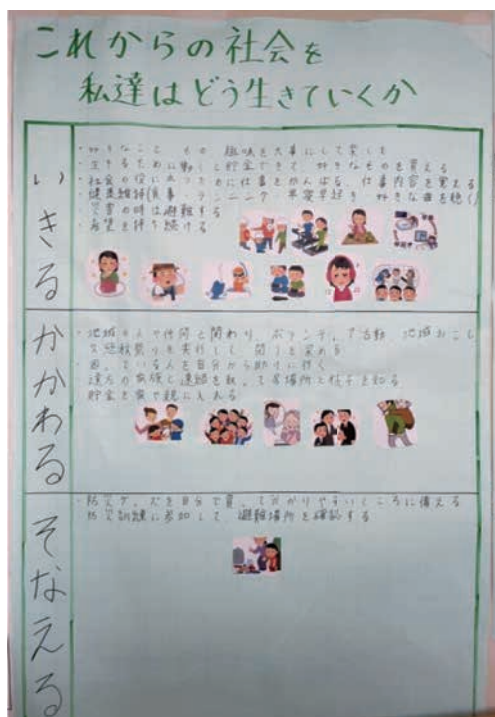 これからの社会を
私達はどう生きていくか
いきる
・好きなこと、もの、趣味を大事にして楽しむ
・生きるために働くと貯金できて、好きなものを買える
・社会の役に立つために仕事をがんばる、仕事内容を覚える
・健康維持(食事、ランニング、早寝早起き、好きな曲を聴く)
・災害の時は避難する
・希望を持ち続ける
かかわる
・地域の人や仲間と関わり、ボランティア活動、地域おこし
祭りを実行して、関りを深める
・困っている人を自分から助けに行く
・遠方の家族と連絡を取って居場所と様子を知る
・貯金を家や親に入れる
そなえる
・防災グッズを自分で買って分かりやすいところに備える
・防災訓練に参加して、避難場所を確認する